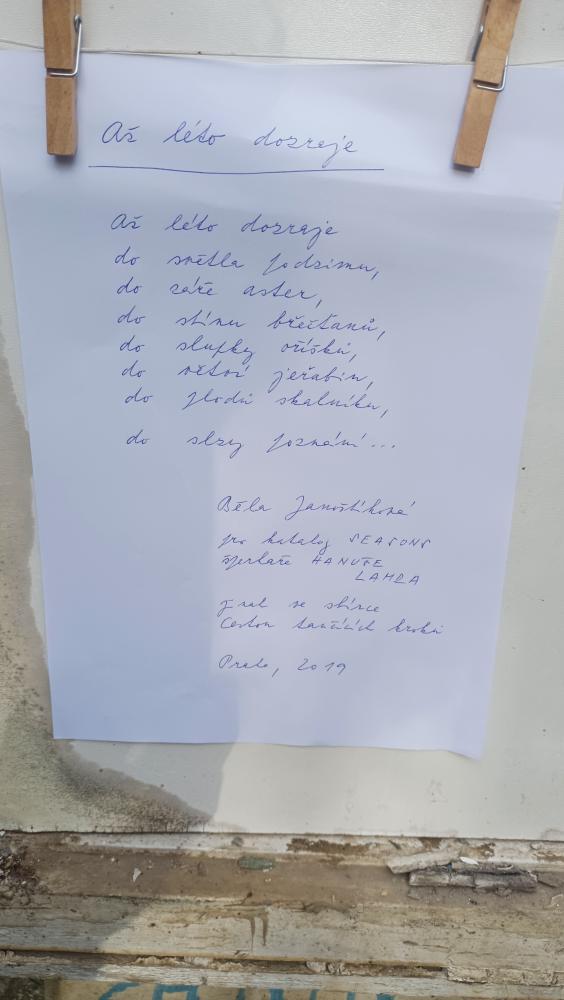 Až léto dozraje
Až léto dozraje
do světla podzimu,
do záře aster,
do stínu břečťanů,
do slupky oříšků,
do větví jeřabin,
do plodů skalníku,
do slzy poznání...
Běla Janoštíková
pro katalog SEASONS
šperkaře HANUŠE
LAMRA
psal se sbírce
Cestou tančících kroků
Praha, 2019